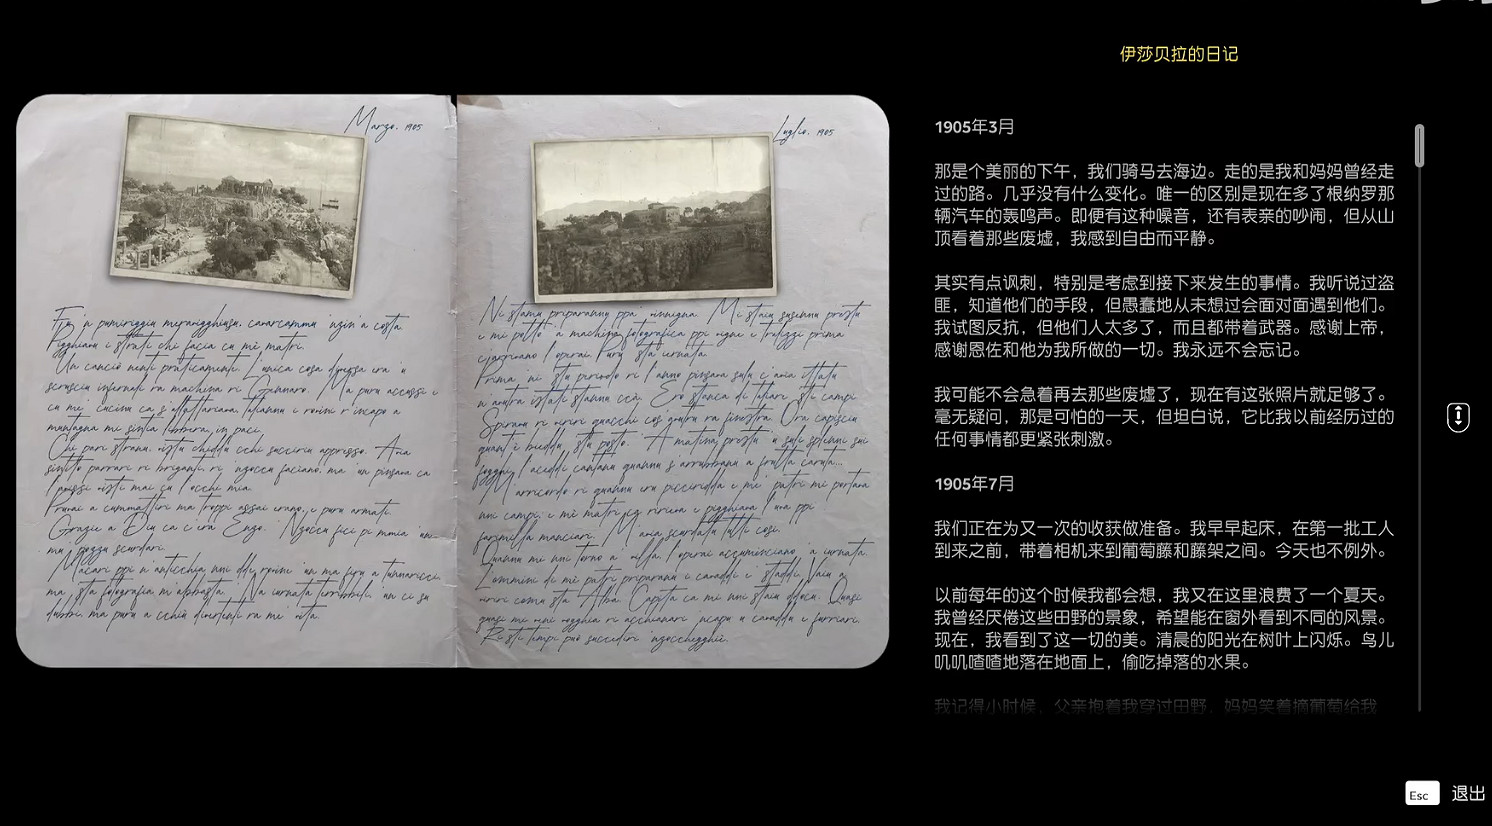 伊莎贝拉的日记
Marzo, 1905
Fu 'n pumiriggiu meravigghiusu, cavarcammu 'nzin'a costa.
Pigghiavu i strati chi facia cu mè matri.
Un canciò nenti praticamenti. L'unica cosa diversa era 'u
scrusciu infernali ra machina ri Gennaro. Ma puru accussì e
ca me' cucinu ca s'allattariava, taliannu i ruvini r'incapu a
muntagna mi sintia libbira, in paci.
Chi pari stranu, visti chiddu cchi succiriu appressu. Avia
sintutu parrari ri briganti, ri 'nzoccu facianu, ma 'un pinzava ca
l'avissi visti mai cu l'occhi mia.
Pruvai a cummattiri ma troppi assai eranu, e puru armati.
Grazie a Diu ca c'era Enzo. 'Nzoccu fici pi mmia 'un
mu pozzu scurdari.
Macari ppi n'anticchia nni ddi ruvini 'un ma firu a turnaricci,
ma 'sta fotografia m'abbasta. 'Na jurnata terribbili, un ci su
dubbi, ma puru a cchiù divirtenti ra me' vita.
Luglio, 1905
Ni stamu priparannu ppa vinnigna. Mi staiu susennu prestu
e mi portu a machina fotografica ppi vigne e tralizzi prima
c'arrivano l'operai. Puru sta jurnata.
Prima, ni stu periodo ri l'anno pinzava sulu c'avia ittatu
n'autra istati stannu ccà. Ero stanca di taliari sti campi.
Spirava ri viriri quacchi cos'autru ra finestra. Ora capisciu
quant'è beddu stu posto. A matina prestu u suli splenni sui
fogghi, l'aceddi cantanu quannu s'arrubbanu a frutta caruta...
M'arricordo ri quannu era picciridda e me' patri mi purtava
nni campi, e mè matri ca rir, pigghiava l'uva ppi
farimilla manciari. M'avia scurdatu tutti cosi.
Quannu mi nni torno a villa, l'operai accuminciano 'a jurnata.
L'ommini di mè patri priparanu i cavaddi e' staddi. Vaiu a
viriri comu sta Alba. Capita ca mi nni staiu ddocu. Quasi
quasi mi veni vogghia ri acchianari 'ncapu u cavaddu e fuirisi.
Ri sti tempi può succediri 'nzoccheggè.
1905年3月
那是个美丽的下午，我们骑马去海边。走的是我和妈妈曾经走
过的路。几乎没有什么变化。唯一的区别是现在多了根纳罗那
辆汽车的轰鸣声。即便有这种噪音，还有表亲的吵闹，但从山
顶看着那些废墟，我感到自由而平静。
其实有点讽刺，特别是考虑到接下来发生的事情。我听说过盗
匪，知道他们的手段，但愚蠢地从未想过会面对面遇到他们。
我试图反抗，但他们人太多了，而且都带着武器。感谢上帝，
感谢恩佐和他为我所做的一切。我永远不会忘记。
我可能不会急着再去那些废墟了，现在有这张照片就足够了。
毫无疑问，那是可怕的一天，但坦白说，它比我以前经历过的
任何事情都更紧张刺激。
1905年7月
我们正在为又一次的收获做准备。我早早起床，在第一批工人
到来之前，带着相机来到葡萄藤和藤架之间。今天也不例外。
以前每年的这个时候我都会想，我又在这里浪费了一个夏天。
我曾经厌倦这些田野的景象，希望能在窗外看到不同的风景。
现在，我看到了这一切的美。清晨的阳光在树叶上闪烁。鸟儿
叽叽喳喳地落在地面上，偷吃掉落的水果。
我记得小时候，父亲抱着我穿过田野，妈妈笑着摘葡萄给我
Esc 退出